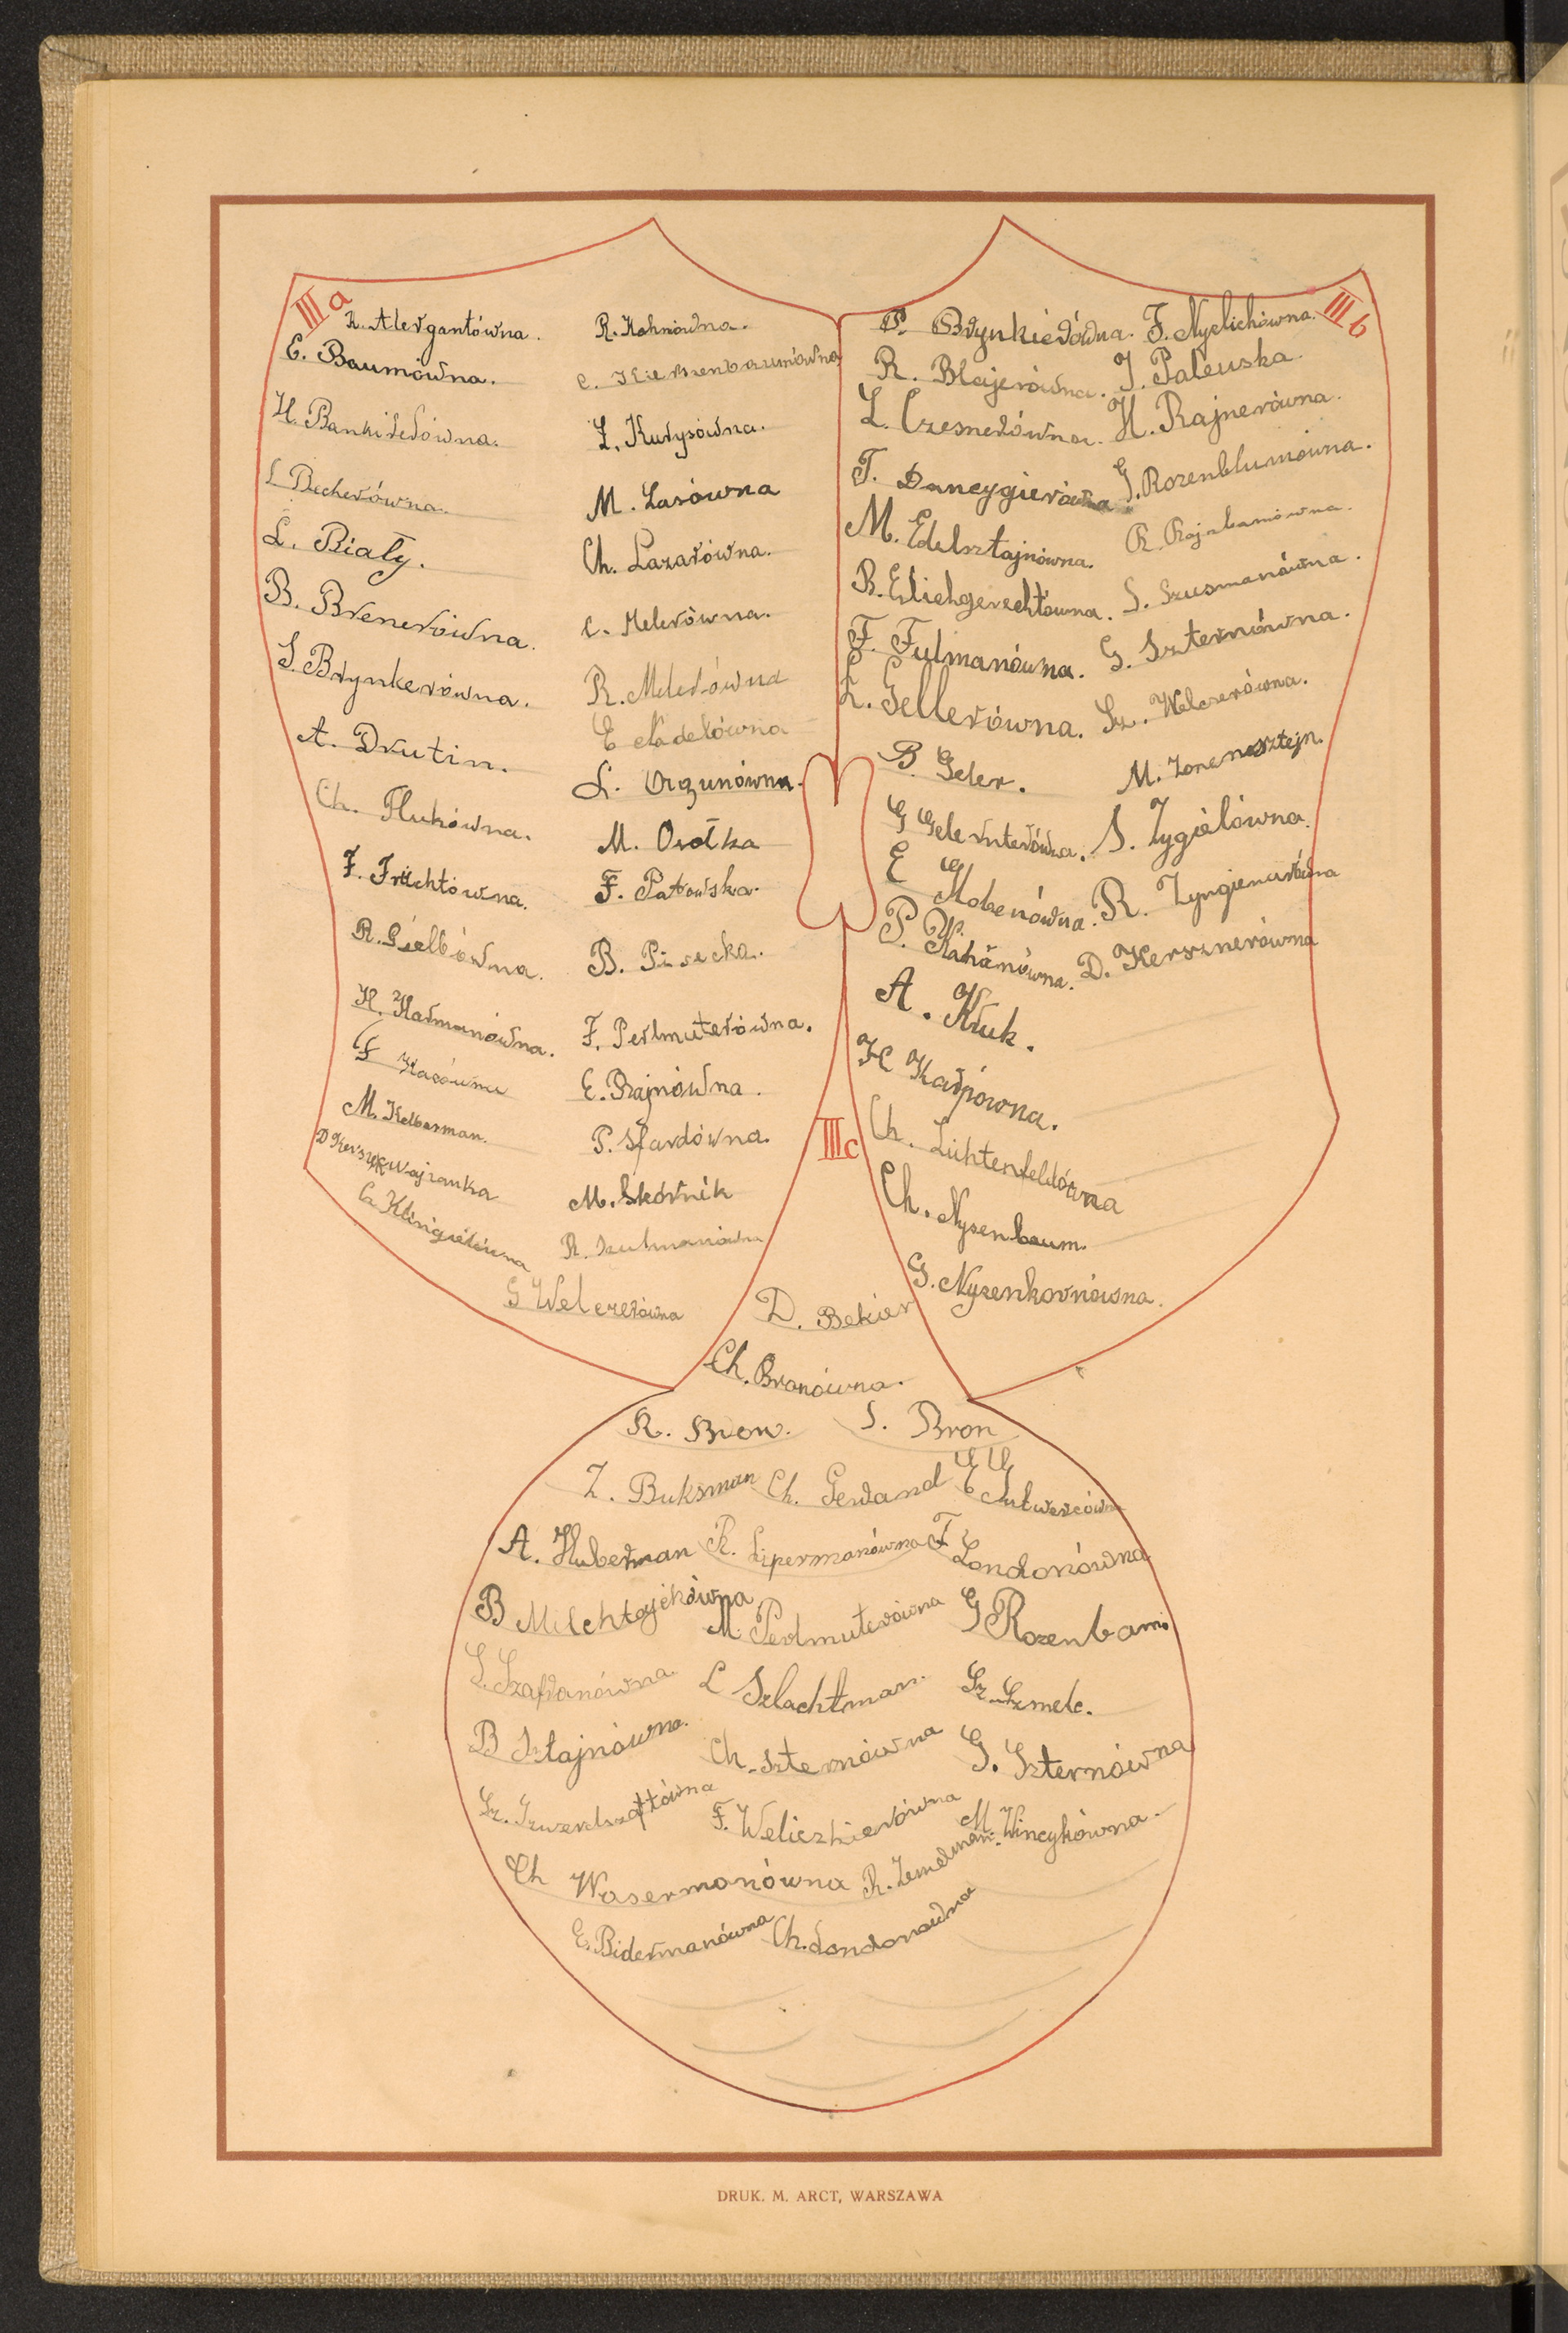 IIIa
R. Alergantówna.
E. Baumówna.
H. Bankierówna.
L Becherówna.
L. Biały.
B. Brenerówna.
S. Brynkerówna.
A. Drutin.
Ch. Flukówna.
F. Früchtówna.
R. Gielbówna.
H. Harmanówna.
Kasówna
M. Kelberman.
D Kerszkwajzanka
G. Klingielówna
R. Kohnówna.
C. Kierszenbaumówna
L. Kurysówna.
M. Lasówna
Ch. Lazarówna.
C. Melerówna.
R. Melerówna
E Nadelówna
L. Orzunówna.
M. Osołka
F. Patowska.
B. Pisecka.
F. Perlmuterówna.
E. Rajnówna.
P. Sfardówna.
M. Skórnik
R. Szulmanówna
G Welczerówna
IIIb
P. Brynkierówna.
R. Blajerówna.
L. Czesnerówna.
T. Dancygierówna
M. Edelsztajnówna.
B. Erlichgerechtówna.
F. Fulmanówna.
L. Gellerówna.
B. Geler.
G Gelernterówna.
E Kohenówna.
P. Kahanówna.
A. Kruk.
K Karpówna.
Ch. Lichtenfeldówna
Ch. Nysenbaum.
G. Nyzenkornówna.
F. Nyelichówna.
J. Paleuska.
H. Rajnerówna.
G. Rozenblumówna.
R. Rojzbamówna.
S. Szusmanówna.
G. Szternówna.
Sz. Welczerówna.
M. Zonenosztejn.
S. Zygielówna.
R. Zyngierówna
D. Kersznerówna
IIIc
D. Bekier
Ch. Bronówna.
R. Bron. S. Bron
Z. Buksman Ch. Gerand E Gutwercówna
A. Huberman R. Lipermanówna F Londonówna
B Milchtajchówna M. Perlmuterówna G Rozenbam
S. Szafranówna. L Szlachtman. Sz. Szmelc.
B Sztajnówna. Ch. Szternówna G. Szternówna
Sz. Szwerdszaftówna F. Weliczkierówna M. Wincykówna.
Ch Wasermanówna R. Zemelman.
E. Bidermanówna Ch. Londonówna
DRUK. M. ARCT, WARSZAWA